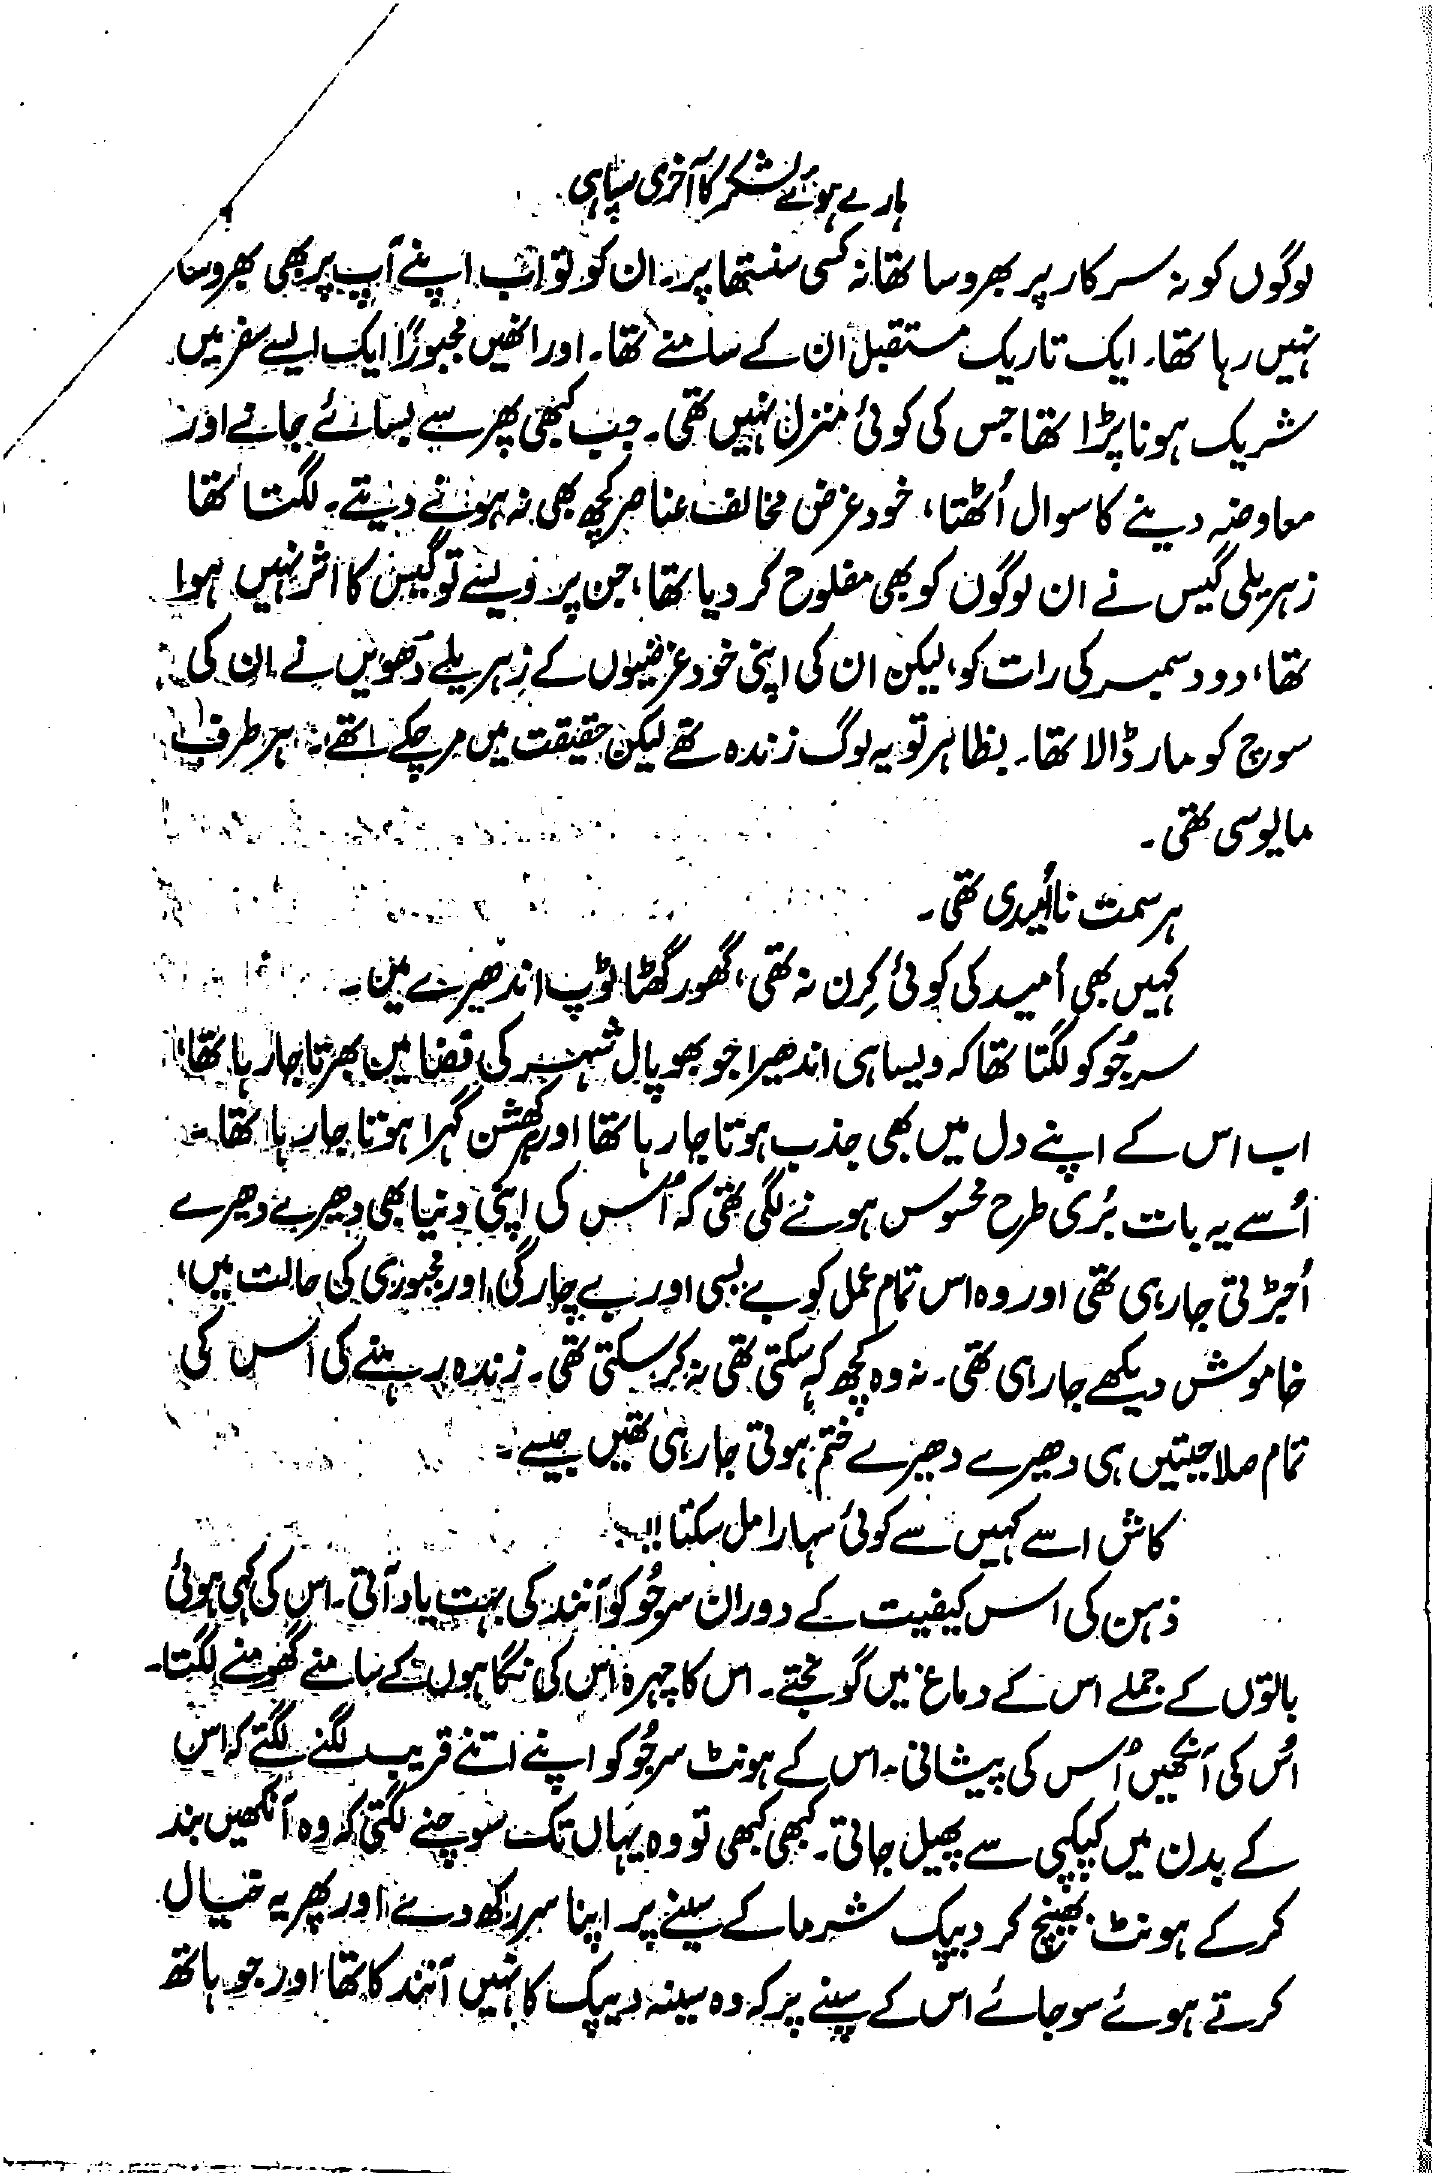 ہارے ہوئے لشکر کا آخری سپاہی
لوگوں کو نہ سرکار پر بھروسا تھا نہ کسی سنستھا پر۔ ان کو تو اب اپنے آپ پر بھی بھروسا
نہیں رہا تھا۔ ایک تاریک مستقبل ان کے سامنے تھا۔ اور انھیں مجبوراً ایک ایسے سفر میں
شریک ہونا پڑا تھا جس کی کوئی منزل نہیں تھی۔ جب کبھی پھر سے بسائے جانے اور
معاوضہ دینے کا سوال اُٹھتا، خود غرض مخالف عناصر کچھ بھی نہ ہونے دیتے۔ لگتا تھا
زہریلی گیس نے ان لوگوں کو بھی مفلوج کر دیا تھا، جن پر ویسے تو گیس کا اثر نہیں ہوا
تھا، دو دسمبر کی رات کو، لیکن ان کی اپنی خود غرضیوں کے زہریلے دھویں نے ان کی
سوچ کو مار ڈالا تھا۔ بظاہر تو یہ لوگ زندہ تھے لیکن حقیقت میں مر چکے تھے۔ ہر طرف
مایوسی تھی۔
ہر سمت نااُمیدی تھی۔
کہیں بھی اُمید کی کوئی کِرن نہ تھی، گھور گھٹا ٹوپ اندھیرے میں۔
سرجُو کو لگتا تھا کہ ویسا ہی اندھیرا جو بھوپال شہر کی فضا میں بھرتا جا رہا تھا،
اب اس کے اپنے دل میں بھی جذب ہوتا جا رہا تھا اور ہرکھشن گہرا ہوتا جا رہا تھا۔
اُسے یہ بات بُری طرح محسوس ہونے لگی تھی کہ اُس کی اپنی دنیا بھی دھیرے دھیرے
اُجڑتی جا رہی تھی اور وہ اس تمام عمل کو بے بسی اور بے چارگی اور مجبوری کی حالت میں،
خاموش دیکھے جا رہی تھی۔ نہ وہ کچھ کہہ سکتی تھی نہ کر سکتی تھی۔ زندہ رہنے کی اس کی
تمام صلاحیتیں ہی دھیرے دھیرے ختم ہوتی جا رہی تھیں جیسے۔
کاش اسے کہیں سے کوئی سہارا مل سکتا!!
ذہن کی اس کیفیت کے دوران سرجُو کو آنند کی بہت یاد آتی۔ اس کی کہی ہوئی
باتوں کے جملے اس کے دماغ میں گونجتے۔ اس کا چہرہ اس کی نگاہوں کے سامنے گھومنے لگتا۔
اُس کی آنکھیں اُس کی پیشانی۔ اس کے ہونٹ سرجُو کو اپنے اتنے قریب لگنے لگتے کہ اس
کے بدن میں کپکپی سے پھیل جاتی۔ کبھی کبھی تو وہ یہاں تک سوچنے لگتی کہ وہ آنکھیں بند
کر کے ہونٹ بھینچ کر دیپک شرما کے سینے پر اپنا سر رکھ دے اور پھر یہ خیال
کرتے ہوئے سو جائے اس کے سینے پر کہ وہ سینہ دیپک کا نہیں آنند کا تھا اور جو ہاتھ